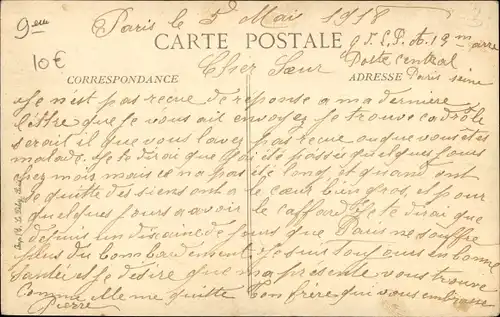 9em
Paris le 5 Mai 1918
10€
CARTE POSTALE
Poste central
Paris seine
Cher Sœur
CORRESPONDANCE
ADRESSE
Je n'est pas recue de réponse a ma derniere
lettre que je vous ait envoyez je trouve ca drôle
serait il que vous l'avez pas recue ou que vous êtes
malade. Je te dirai que j'ai été passée quelques jours
chez mois mais ce na pas été long, et quand ont
se quitte des siens ont a le cœur bien gros, et pour
quelques jours a avoir le caffard. Je te dirai que
depuis un dizaine de jours que Paris ne souffre
plus du bombardement. Je suis toujours en bonne
santée et je désire que ma presente vous trouve
comme elle me quitte ton frère qui vous embrasse
Pierre